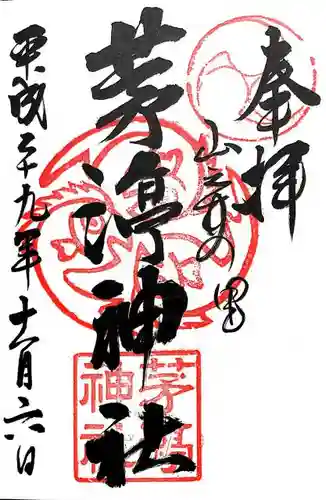 奉拝
茅渟神社
平成二十九年十一月六日
茅渟
神社